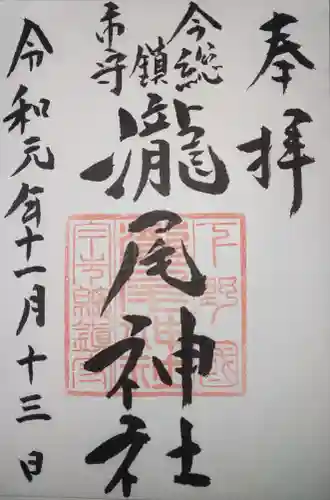 奉拝
今市総鎮守
瀧尾神社
令和元年十一月十三日
下野國
瀧尾神社
今市総鎮守